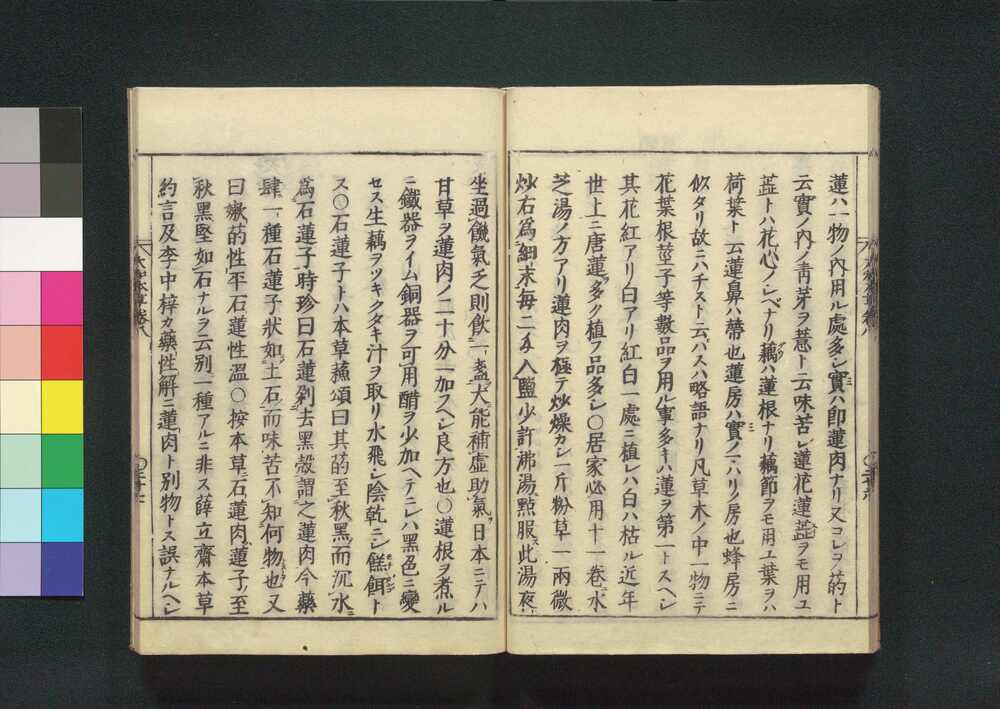 蓮ハ一物ノ内用ル處多シ實ハ即蓮肉ナリ又コレヲ菂ト
云實ノ內ノ青芽ヲ薏ト云味苦シ蓮花蓮蕋ヲモ用ユ
蕋トハ花心ノシベナリ藕ハ蓮根ナリ藕節ヲモ用ユ葉ヲハ
荷葉ト云蓮鼻ハ蔕也蓮房ハ實ノ入ハリノ房也蜂房ニ
似タリ故ニハチスト云バスハ略語ナリ凡草木ノ中一物ニテ
花葉根莖子等數品ヲ用ル事多キハ蓮ヲ第一トスヘシ
其花紅アリ白アリ紅白一處ニ植レハ白ハ枯ル近年
世上ニ唐蓮多ク植フ品多シ〇居家必用十一卷水
芝湯ノ方アリ蓮肉ヲ極テ炒燥カシ一斤粉草一兩微
炒右爲細末每二匁入鹽少許沸湯點服此湯夜
坐過饑氣乏則飲一盞大能補虛助氣日本ニテハ
甘草ヲ蓮肉ノ二十分一加フヘシ良方也〇蓮根ヲ煮ル
ニ鐵器ヲイム銅器ヲ可用醋ヲ少加ヘテニハ黑色ニ變
セス生藕ヲツキクタキ汁ヲ取リ水飛シ陰乾ニシ餻餌ト
ス〇石蓮子トハ本草蘓頌曰其菂至秋黑而沉水
爲石蓮子時珍曰石蓮剁去黑殼謂之蓮肉今藥
肆一種石蓮子狀如土石而味苦不知何物也又
曰嫰菂性平石蓮性溫〇按本草石蓮肉蓮子至
秋黑堅如石ナルヲ云別一種アルニ非ス薛立齋本草
約言及李中梓カ藥性解ニ蓮肉ト別物トス誤ナルヘシ
大和本草卷八